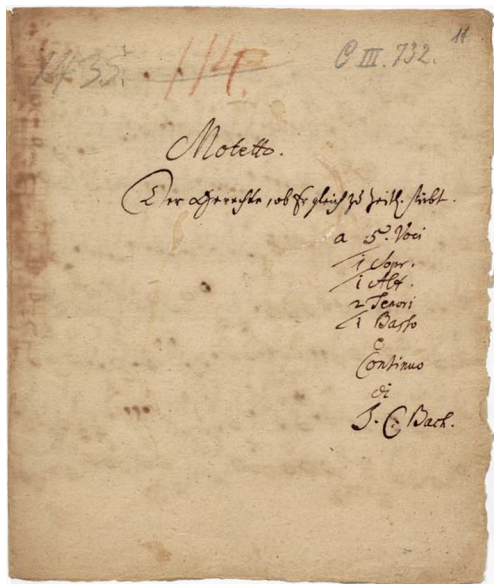 11
C III. 732.
114.
Motetto.
Der Gerechte, ob Er gleich zu Zeitl. stirbt.
a 5. Voci
1 Sopr.
1 Alt.
2 Tenori
1 Basso
e
Continuo
di
J. C. Bach.